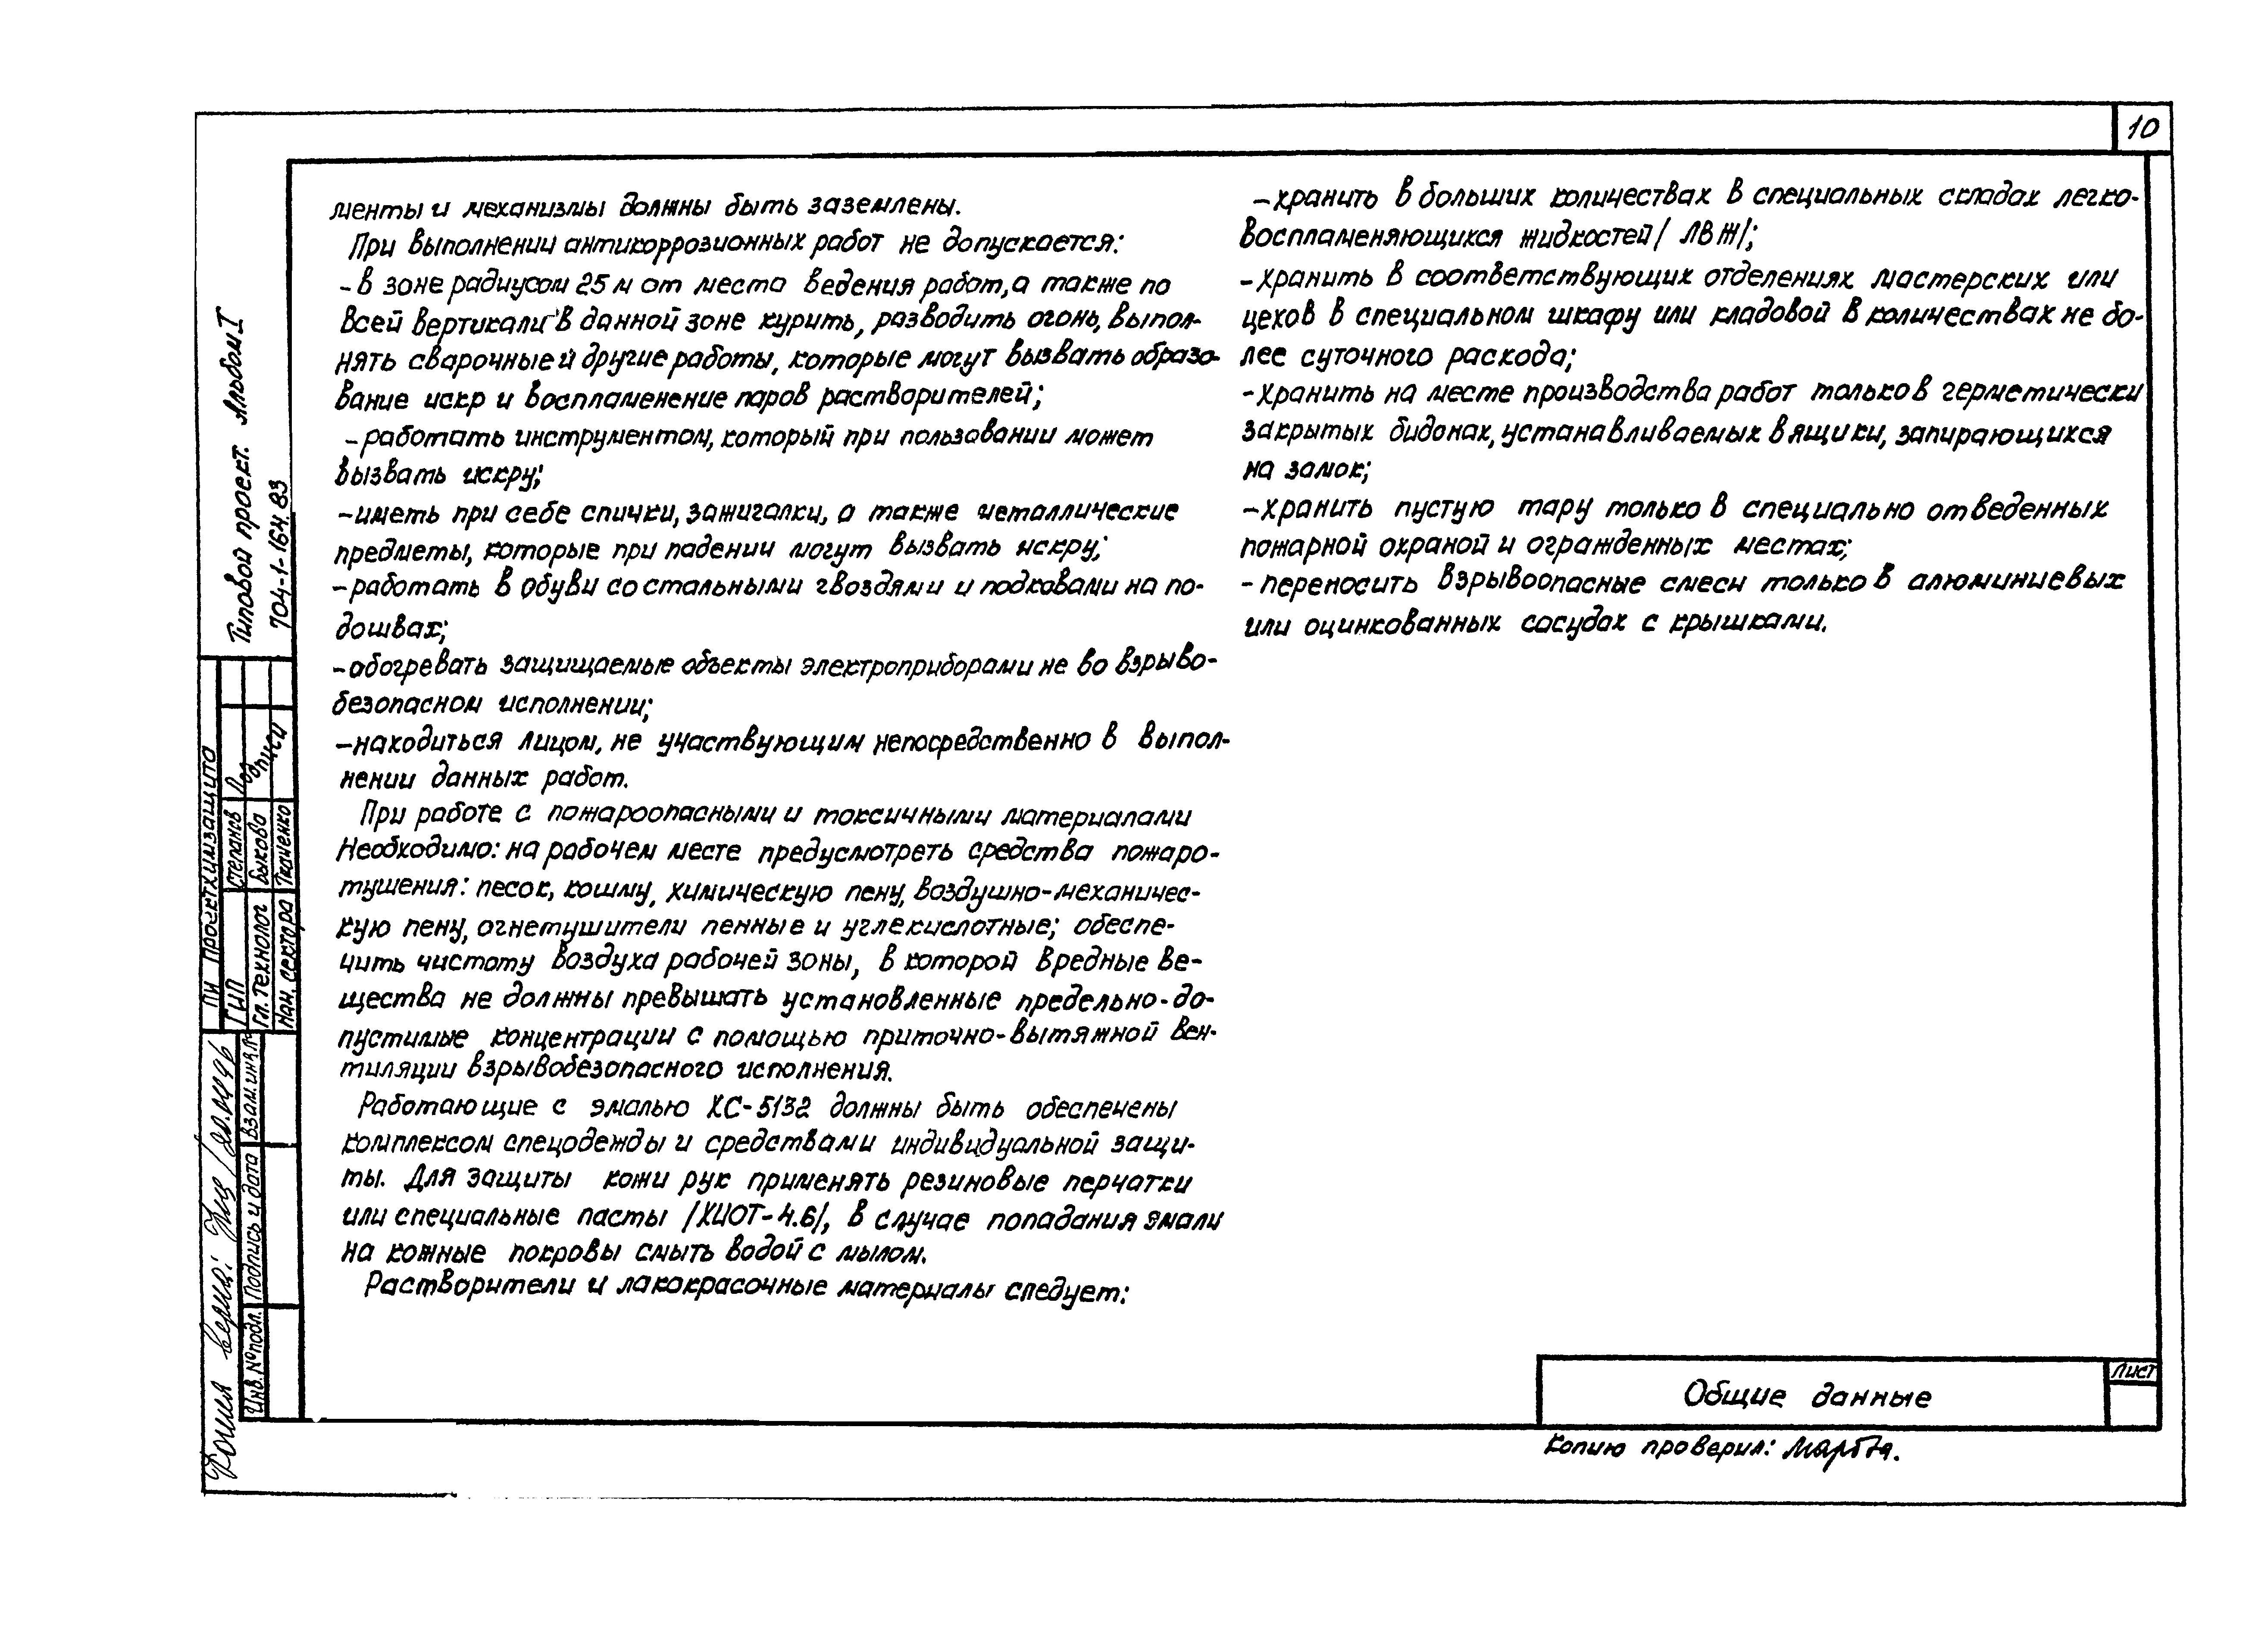 10
менты и механизмы должны быть заземлены.
При выполнении антикоррозионных работ не допускается:
- в зоне радиусом 25 м от места ведения работ, а также по
всей вертикали в данной зоне курить, разводить огонь, выпол-
нять сварочные и другие работы, которые могут вызвать образо-
вание искр и воспламенение паров растворителей;
- работать инструментом, который при пользовании может
вызвать искру;
- иметь при себе спички, зажигалки, а также металлические
предметы, которые при падении могут вызвать искру;
- работать в обуви со стальными гвоздями и подковами на по-
дошвах;
- обогревать защищаемые объекты электроприборами не во взрыво-
безопасном исполнении;
- находиться лицом, не участвующим непосредственно в выпол-
нении данных работ.
При работе с пожароопасными и токсичными материалами
Необходимо: на рабочем месте предусмотреть средства пожаро-
тушения: песок, кошму, химическую пену, воздушно-механичес-
кую пену, огнетушители пенные и углекислотные; обеспе-
чить чистоту воздуха рабочей зоны, в которой вредные ве-
щества не должны превышать установленные предельно-до-
пустимые концентрации с помощью приточно-вытяжной вен-
тиляции взрывобезопасного исполнения.
Работающие с эмалью ХС-5132 должны быть обеспечены
комплексом спецодежды и средствами индивидуальной защи-
ты. Для защиты кожи рук применять резиновые перчатки
или специальные пасты /ХИОТ-4.6/, в случае попадания эмали
на кожные покровы смыть водой с мылом.
Растворители и лакокрасочные материалы следует:
- хранить в больших количествах в специальных складах легко-
воспламеняющихся жидкостей / ЛВЖ/;
- хранить в соответствующих отделениях мастерских или
цехов в специальном шкафу или кладовой в количествах не бо-
лее суточного расхода;
- хранить на месте производства работ только в герметически
закрытых бидонах, устанавливаемых в ящики, запирающихся
на замок;
- хранить пустую тару только в специально отведенных
пожарной охраной и огражденных местах;
- переносить взрывоопасные смеси только в алюминиевых
или оцинкованных сосудах с крышками.
Типовой проект. Альбом I
704-1-164.83
ПИ Проектхимзащита
ГИП Степанев Подписи
Гл. технолог Быкова
Нач. сектора Ткаченко
Взам. инв. №
Подпись и дата
Инв. № подл.
Общие данные
Лист
Копию проверил: Марбня.